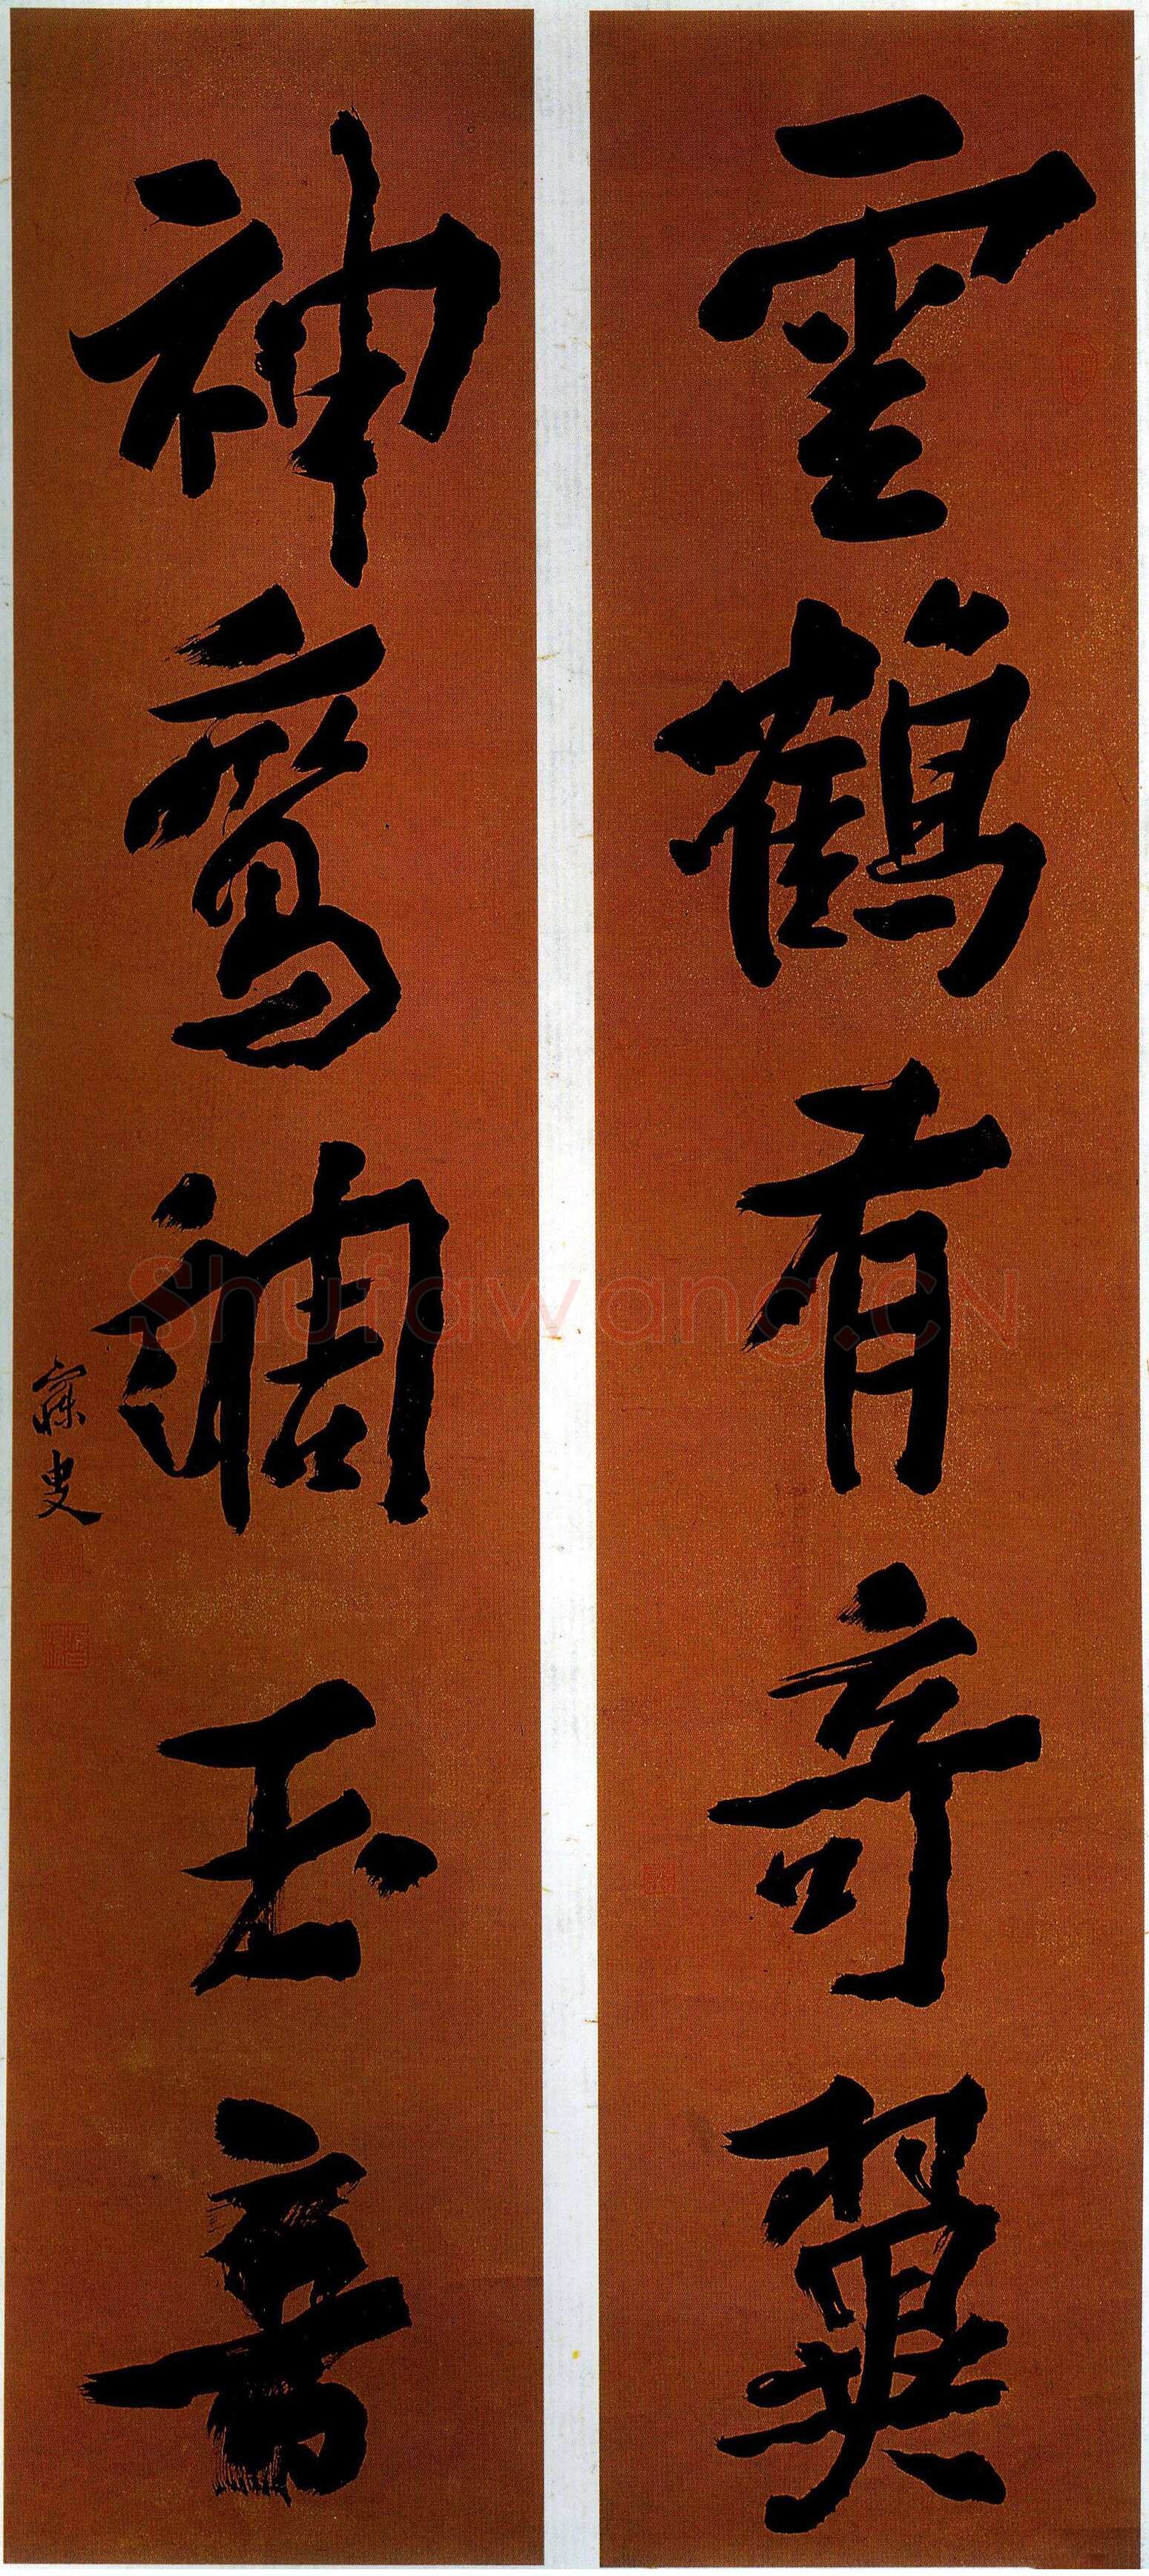 雲鶴有奇翼
神鸞調玉音
寐叟
Shufawang.CN